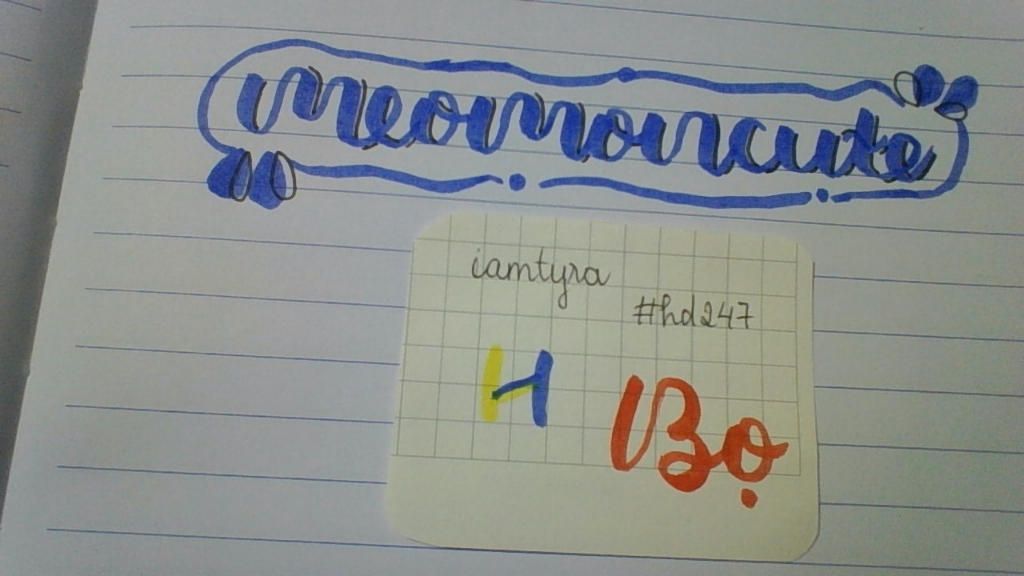 meomoncute
iamtyra
#hd247
H Bọ